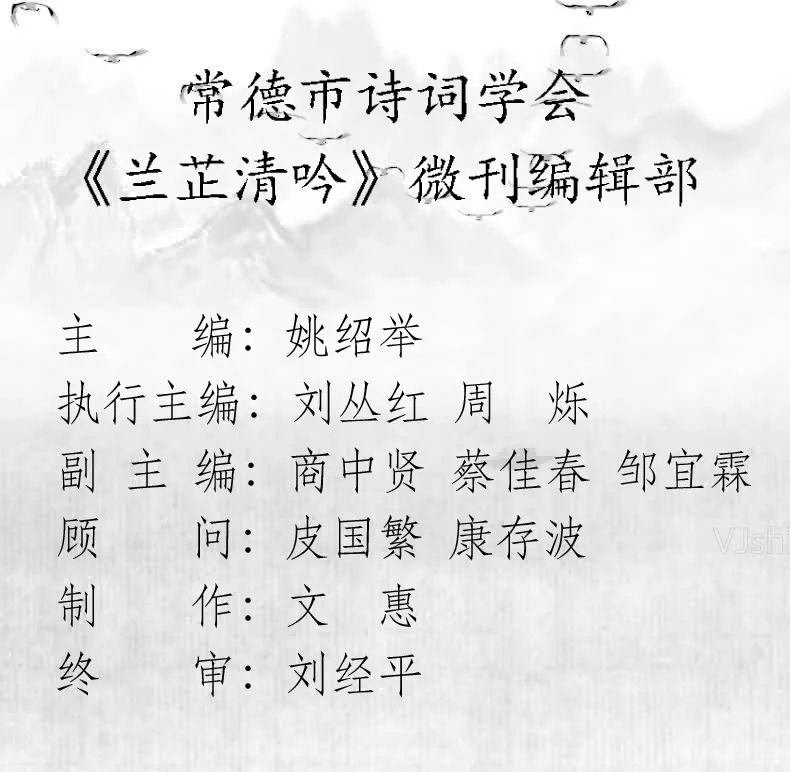 常德市诗词学会
《兰芷清吟》微刊编辑部
主 编：姚绍举
执行主编：刘丛红 周 烁
副 主 编：商中贤 蔡佳春 邹宜霖
顾 问：皮国繁 康存波
VJshi
制 作：文 惠
终 审：刘经平